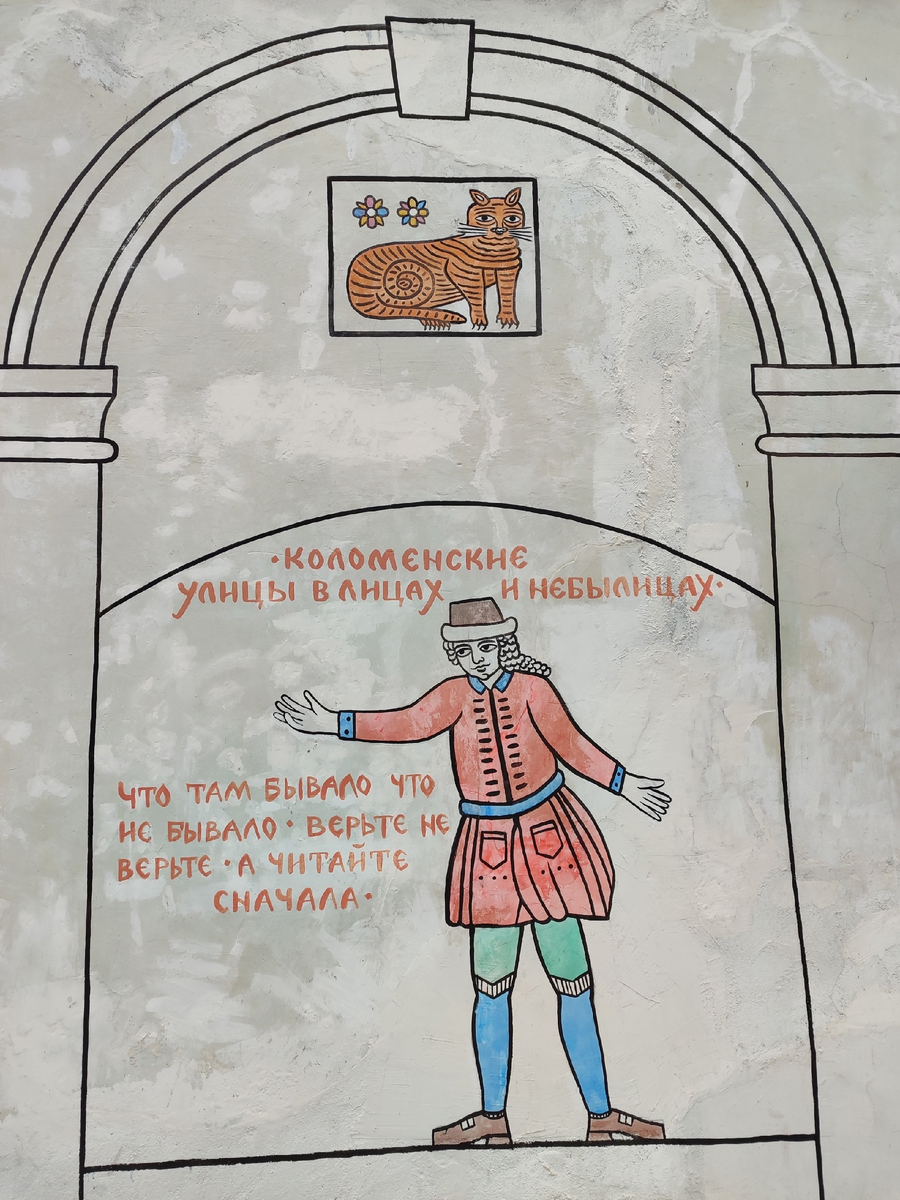 ·КОЛОМЕНСКИЕ
УЛИЦЫ В ЛИЦАХ И НЕБЫЛИЦАХ·
ЧТО ТАМ БЫВАЛО ЧТО
НЕ БЫВАЛО · ВЕРЬТЕ НЕ
ВЕРЬТЕ · А ЧИТАЙТЕ
СНАЧАЛА·